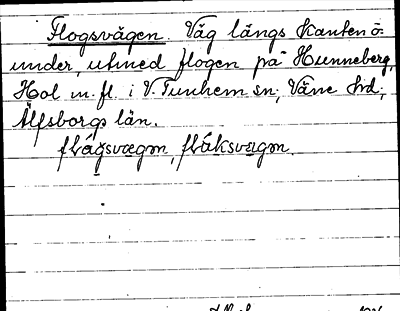 Flogsvägen. Väg längs kanten o.
under, utmed flogen på Hunneberg,
Hol m. fl. i V. Tunhem sn, Väne hd,
Älfsborgs län.
flågsvægən, flåksvægən.